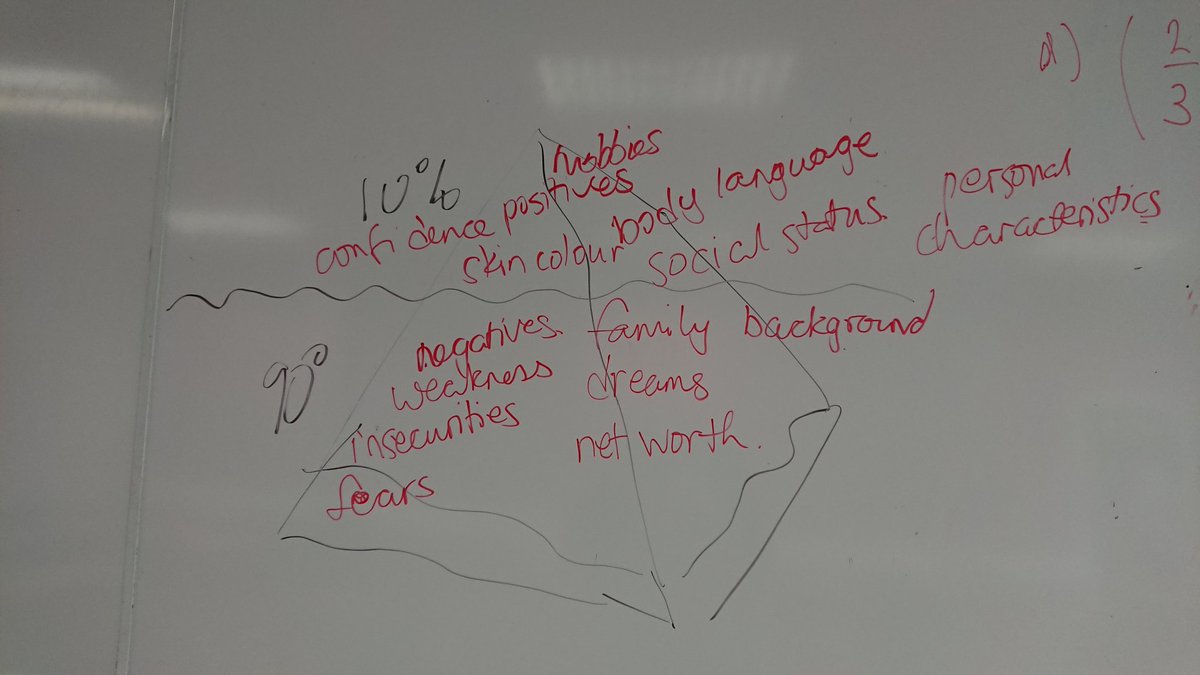 10%
hobbies
confidence positives
body language
skin colour
social status.
personal
characteristics
90°
negatives.
weakness
insecurities
fears
family background
dreams
net worth.
a) ( 2/3